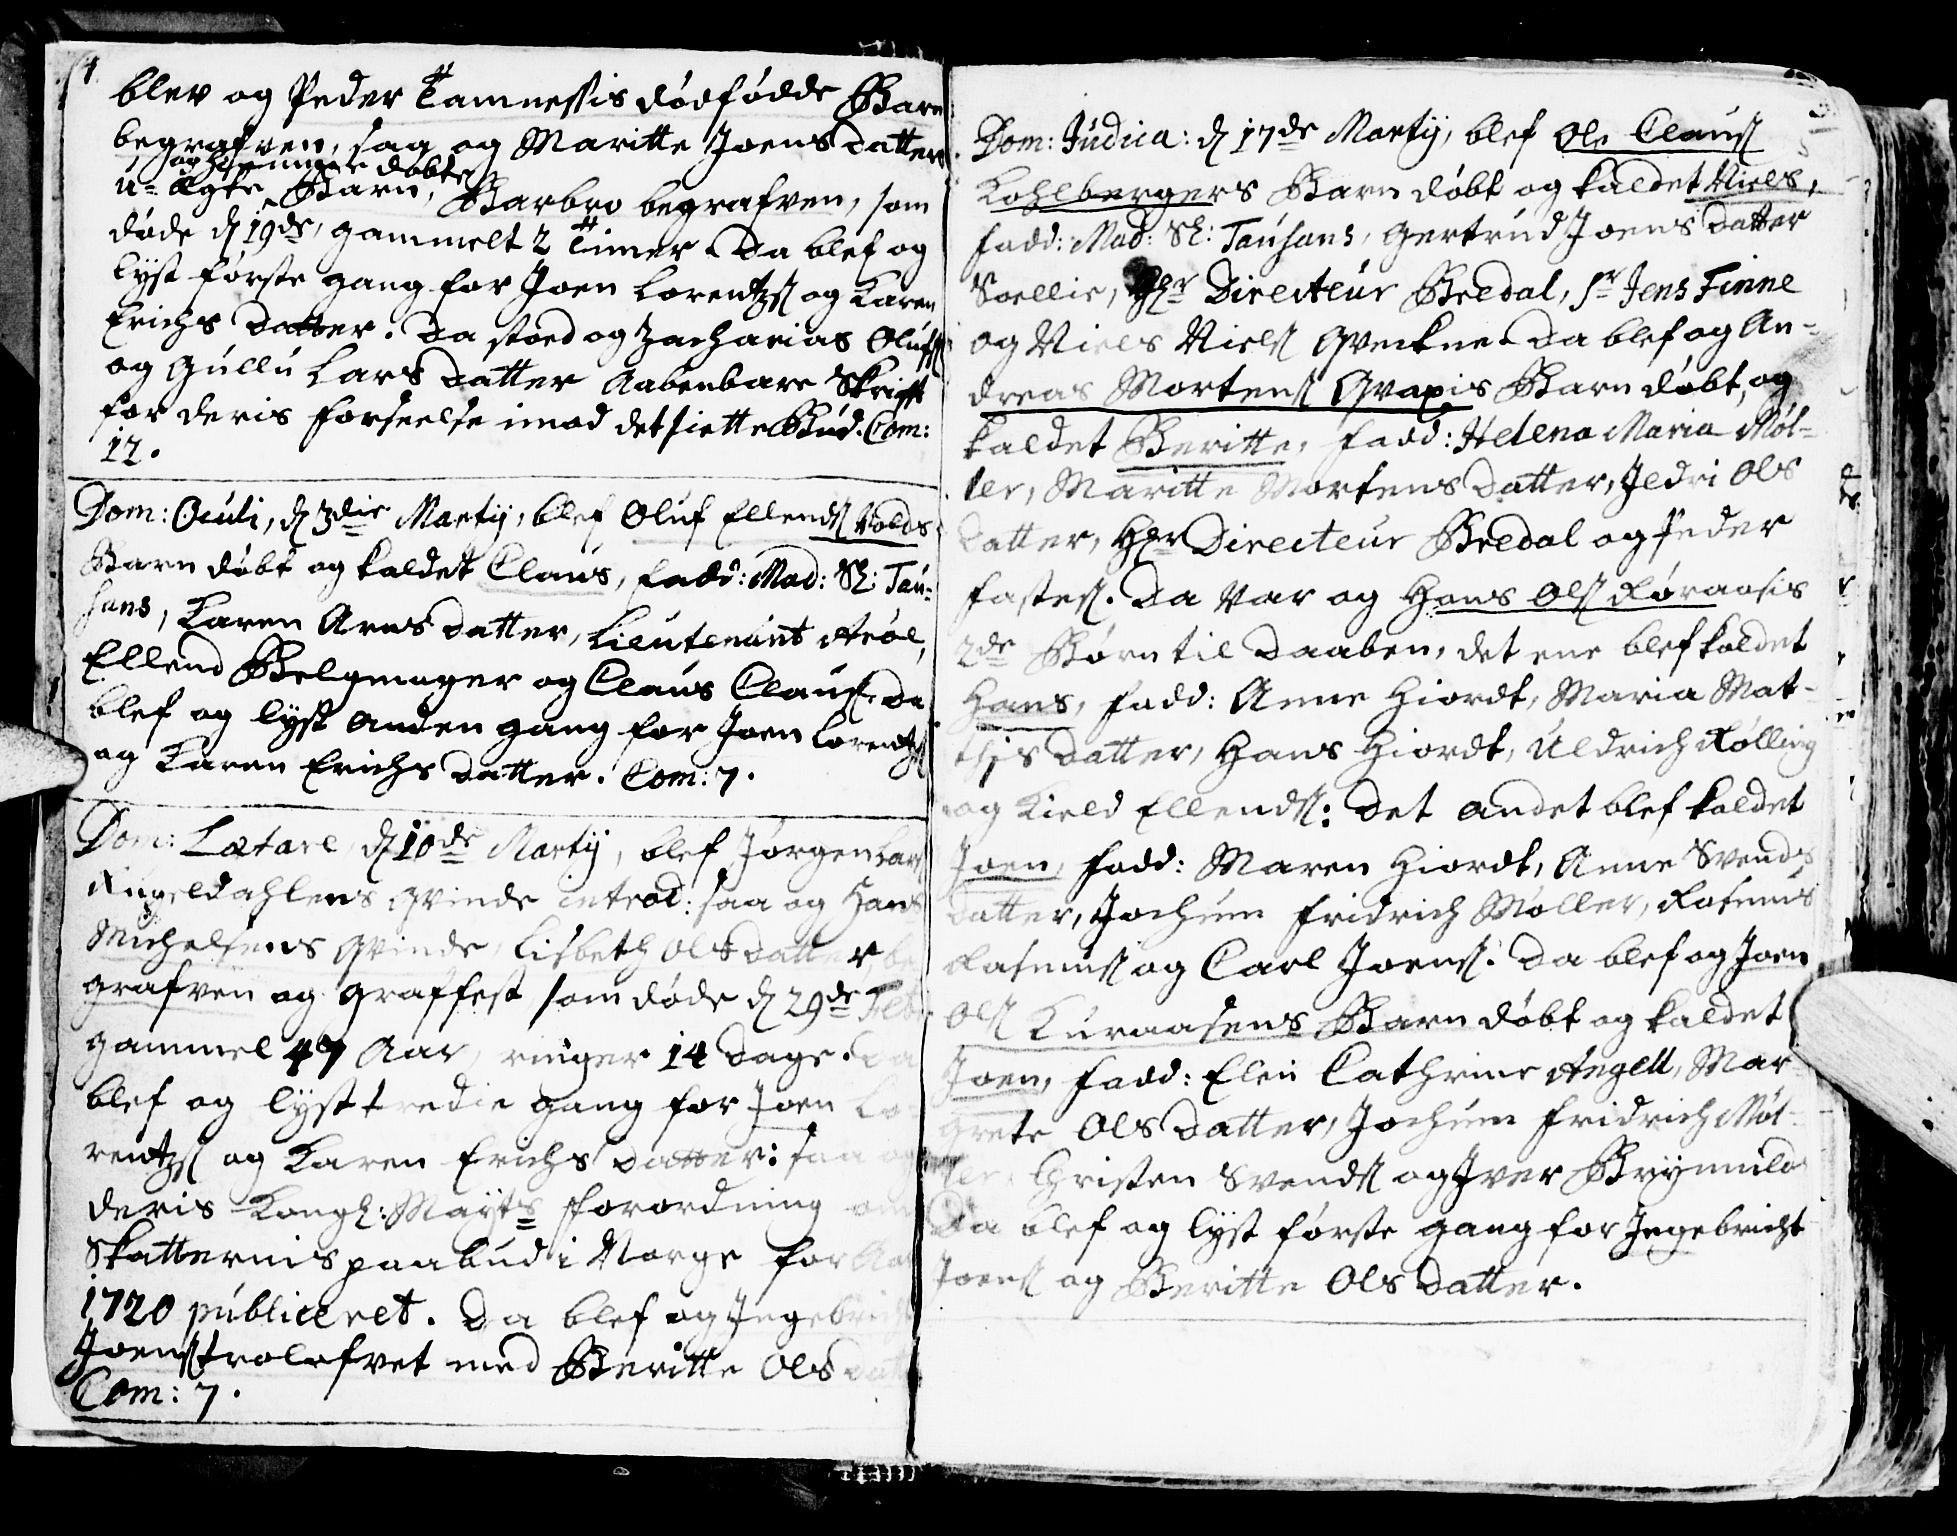 4.
blev og Peder Tamnessis dødfødde Barn
begrafven, saa og Maritte Joens Datters
og hiemme døbte
u-Ægte Barn, Barbro begrafven, som
døde d 19de, gammelt 2 Timer. Da blef og
lyst første gang for Joen Lorentzs og Karen
Erichs Datter. Da stoed og Zacharias Olufs
og Gullu Lars Datter Aabenbare Skrifft
for deris Forseelse imod det siette Bud. Com:
12.
Dom: Oculi, d 3die Martij, blef Oluf Ellends Volds
Barn døbt og kaldet Claus, Fadd: Mad: Sl: Tau-
sans, Karen Arns Datter, Lieutenant Røl,
Ellend Belgmager og Claus Claus. Da
blef og lyst Anden gang for Joen Lorentzs
og Karen Erichs Datter. Com: 7.
Dom: Lætare, d 10de Martij, blef Jørgen Lars
Ringeldahlens Qvinde introd: saa og Hans
Michelsens Qvinde, Lisbeth Ols Datter, be
grafven og Graffest som døde d 29de Feb
gammel 47 Aar, ringer 14 Dage. Da
blef og lyst tredie gang for Joen Lo
rentzs og Karen Erichs Datter: saa og
deris Kongl: Mayts Forordning om
Skatternis paabud i Norge for Aar
1720 publiceret. Da blef og Ingebricht
Joens trolofvet med Beritte Ols Datt
Com: 7.
5
Dom: Judica: d 17de Martij, blef Ole Claus
Kohlbergers Barn døbt og kaldet Niels,
Fadd: Mad: Sl: Tausans, Gertrud Joens Datter
Soellie, Hr Directeur Bredal, Sr Jens Finne
og Niels Niels Qveckne. Da blef og An-
dreas Mortens Qvapis Barn døbt, og
kaldet Beritte, Fadd: Helena Maria Møl-
ler, Maritte Mortens Datter, Jedri Ols
Datter, Hr Directeur Bredal og Peder
Fastes. Da var og Hans Ols Røraasis
2de Børn til Daaben, det ene blef kaldet
Hans, Fadd: Anne Hiordt, Maria Mat-
this Datter, Hans Hiordt, Uldrich Rølling
og Kield Ellends: Det andet blef kaldet
Joen, Fadd: Maren Hiordt, Anne Svends
Datter, Jochum Fridrich Møller, Rasmus
Rasmus og Carl Joens. Da blef og Joen
Ols Kuraasens Barn døbt og kaldet
Joen, Fadd: Elen Cathrine Angell, Mar
grete Ols Datter, Jochum Fridrich Møl-
ler, Christen Svends og Iver Brynnild
Da blef og lyst første gang for Ingebricht
Joens og Beritte Ols Datter.